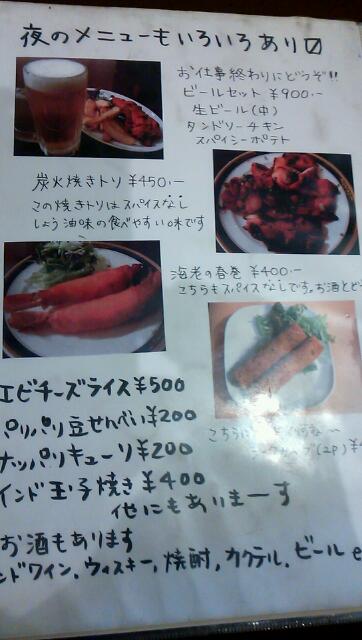 夜のメニューもいろいろあり〼
お仕事終わりにどうぞ!!
ビールセット ¥900.-
生ビール(中)
タンドリーチキン
スパイシーポテト
炭火焼きトリ ¥450.-
この焼きトリはスパイスなし
しょう油味の食べやすい味です
海老の春巻 ¥400.-
こちらもスパイスなしです。お酒とど
エビチーズライス¥500
パリパリ豆せんべい¥200
ナッパリキューリ¥200
インド玉子焼き ¥400
他にもありまーす
お酒もあります
ンドワイン, ウィスキー, 焼酎, カクテル, ビール e
こちらに
(2P)